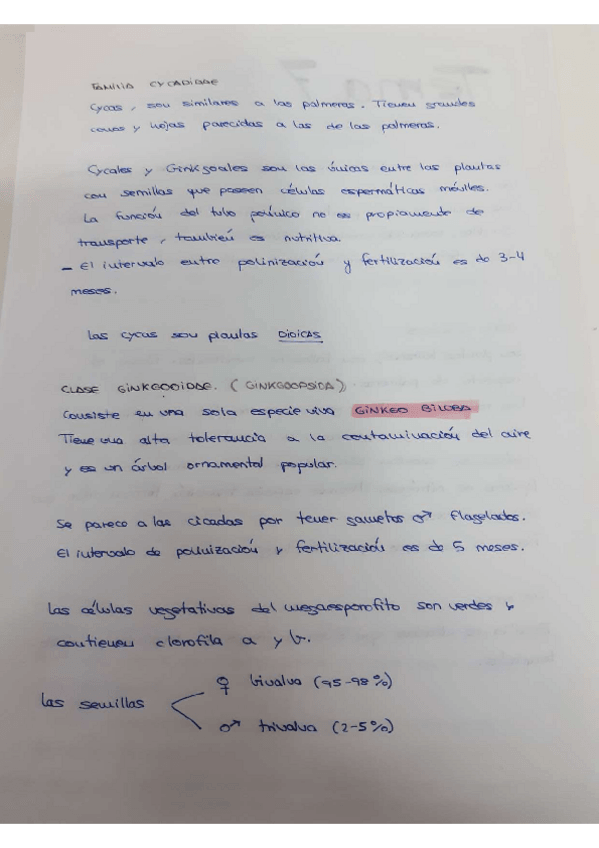 FAMILIA CYCADIDAE
Cycas, son similares a las palmeras. Tienen grandes
conos y hojas parecidas a las de las palmeras.
Cycales y Ginkgoales son las únicas entre las plantas
con semillas que poseen células espermáticas móviles.
La función del tubo polínico no es propiamente de
transporte, también es nutritiva.
- El intervalo entre polinización y fertilización es de 3-4
meses.
Las cycas son plantas DIOICAS
CLASE GINKGOOIDAE. (GINKGOOPSIDA)
Consiste en una sola especie viva GINKGO BILOBA
Tiene una alta tolerancia a la contaminación del aire
y es un árbol ornamental popular.
Se parece a las cicadas por tener gametos ♂ flagelados.
El intervalo de polinización y fertilización es de 5 meses.
Las células vegetativas del megaesporofito son verdes y
contienen clorofila a y b.
Las semillas
♀ bivalva (95-98%)
♂ trivalva (2-5%)